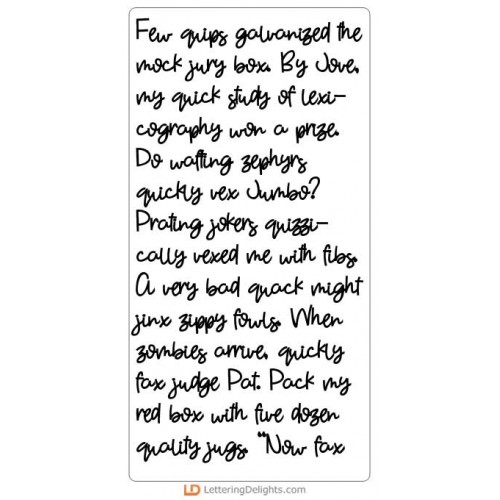 Few quips galvanized the
mock jury box. By Jove,
my quick study of lexi-
cography won a prize.
Do wafting zephyrs
quickly vex Jumbo?
Prating jokers quizzi-
cally vexed me with fibs.
A very bad quack might
jinx zippy fowls. When
zombies arrive, quickly
fax judge Pat. Pack my
red box with five dozen
quality jugs. "Now fax
LD LetteringDelights.com